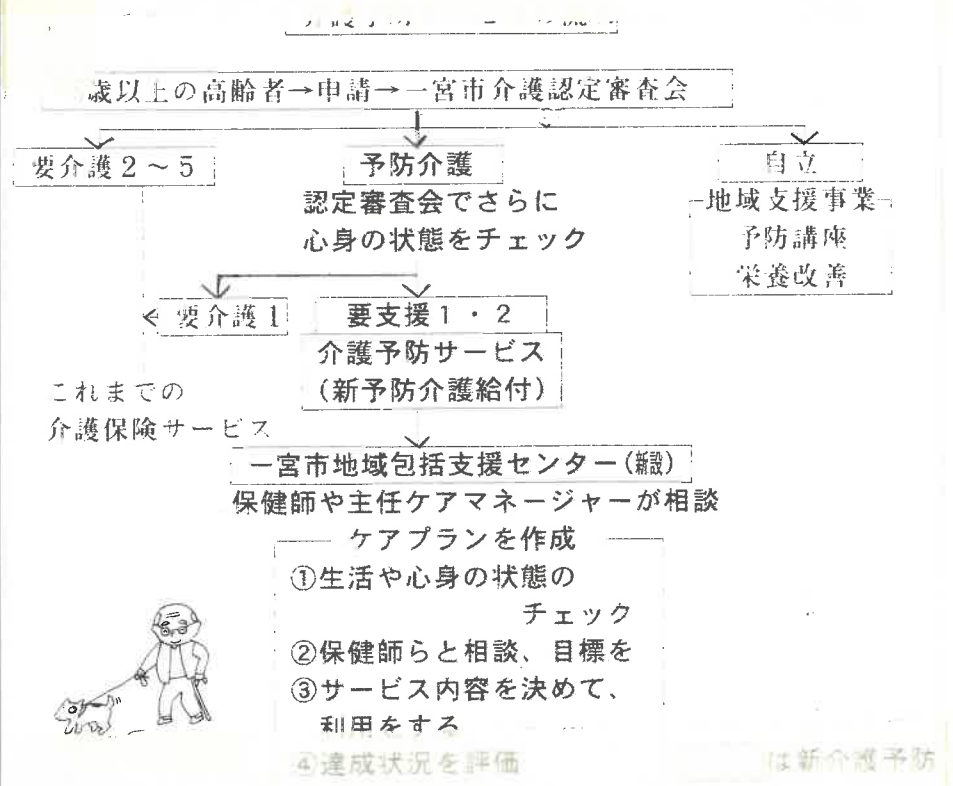 歳以上の高齢者→申請→一宮市介護認定審査会
要介護2～5
予防介護
自立
認定審査会でさらに
心身の状態をチェック
地域支援事業
予防講座
栄養改善
要介護1
要支援1・2
介護予防サービス
(新予防介護給付)
これまでの
介護保険サービス
一宮市地域包括支援センター(新設)
保健師や主任ケアマネージャーが相談
ケアプランを作成
①生活や心身の状態の
チェック
②保健師らと相談、目標を
③サービス内容を決めて、
利用をする
④達成状況を評価
は新介護予防